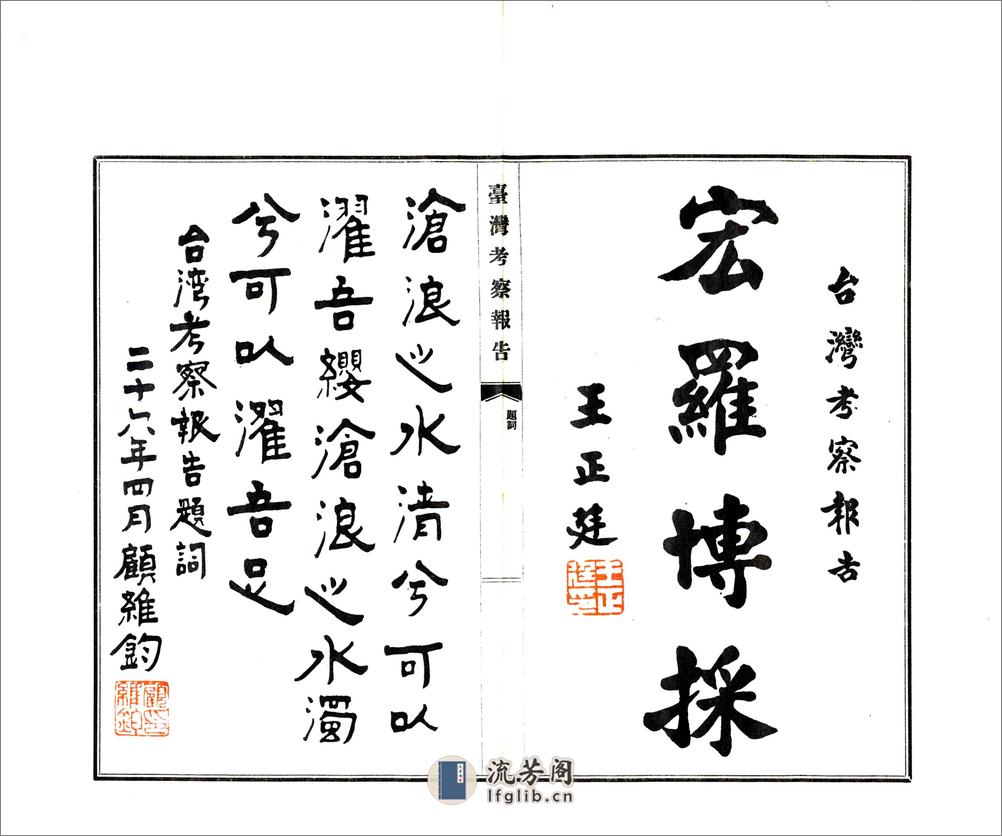 台灣考察報告
宏羅博採
王正廷
王正廷印
臺灣考察報告
題詞
滄浪之水清兮可以
濯吾纓滄浪之水濁
兮可以濯吾足
台湾考察報告題詞
二十六年四月顧維鈞
顧維鈞印
流芳阁
lfglib.cn